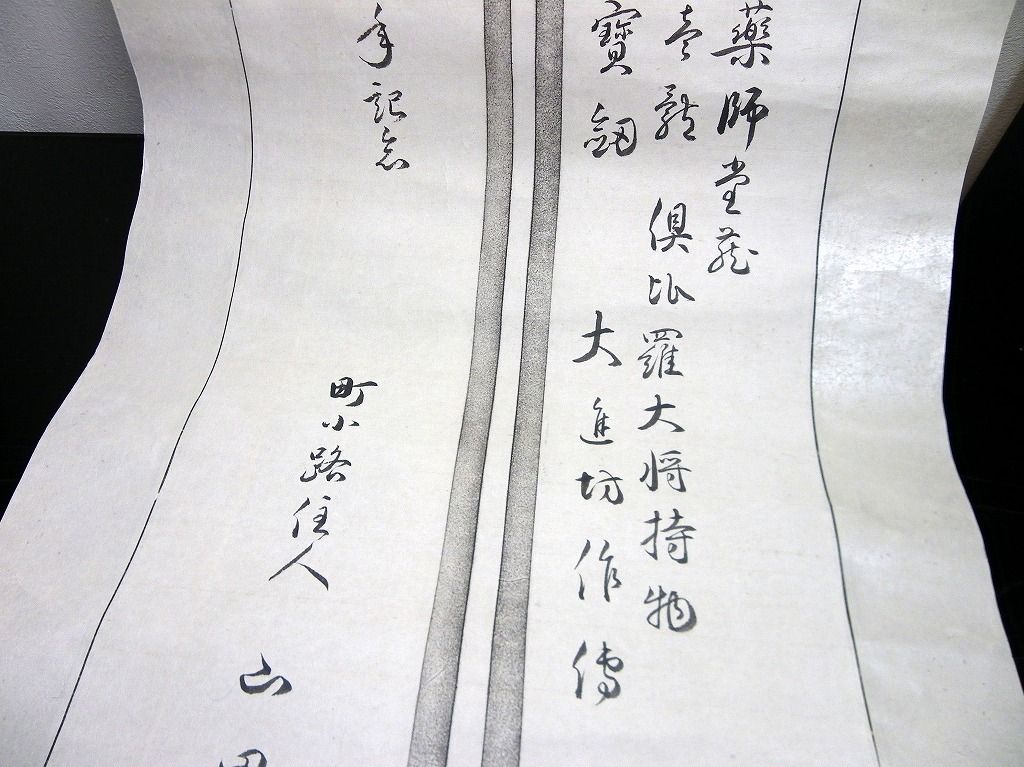 藥師堂蔵
倶比羅大将持物
寶劔 大進坊作傳
年記念
町小路住人
山